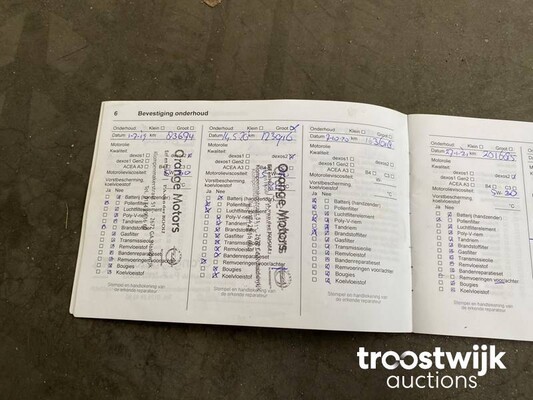 6 Bevestiging onderhoud
Onderhoud: Klein Groot
Datum km 83694
Motorolie
Kwaliteit:
dexos1 dexos2
dexos1 Gen2 C3
ACEA A3
Motorviscositeit
Vorstbescherming,
koelvloeistof
Ja Nee
Batterij (handzender)
Pollenfilter
Luchtfilterelement
Poly-V-riem
Tandriem
Brandstoffilter
Gasfilter
Transmissieolie
Remvloeistof
Bandenreparatieset
Remvoeringen
Bougies
Koelvloeistof
Stempel en handtekening van
de erkende reparateur
Orange Motors
Onderhoud: Klein Groot
Datum 14.5.20 km 123916
Motorolie
Kwaliteit:
dexos1 dexos2
dexos1 Gen2
ACEA A3
Motorolieviscositeit
Vorstbescherming,
koelvloeistof
Ja Nee
Batterij
Pollenfilter
Luchtfilterelement
Poly-V-riem
Tandriem
Brandstoffilter
Gasfilter
Transmissieolie
Remvloeistof
Bandenreparatieset
Remvoeringen voor/achter
Bougies
Koelvloeistof
Stempel en handtekening van
de erkende reparateur
Orange Motors
Onderhoud: Klein Groot
Datum km
Motorolie
Kwaliteit:
dexos1 dexos2
dexos1 Gen2
ACEA A3 B4 C3
Motorolieviscositeit
Vorstbescherming,
koelvloeistof °C
Ja Nee
Batterij (handzender)
Pollenfilter
Luchtfilterelement
Poly-V-riem
Tandriem
Brandstoffilter
Gasfilter
Transmissieolie
Remvloeistof
Bandenreparatieset
Remvoeringen voor/achter
Bougies
Koelvloeistof
Stempel en handtekening van
de erkende reparateur
Onderhoud: Klein Groot
Datum km 201685
Motorolie
Kwaliteit:
dexos1 dexos2
dexos1 Gen2
ACEA A3 B4
Motorolieviscositeit
Vorstbescherming,
koelvloeistof °C
Ja Nee
Batterij (handzender)
Pollenfilter
Luchtfilterelement
Poly-V-riem
Tandriem
Brandstoffilter
Gasfilter
Transmissieolie
Remvloeistof
Bandenreparatieset
Remvoeringen voor/achter
Bougies
Koelvloeistof
Stempel en handtekening van
de erkende reparateur
troostwijk
auctions